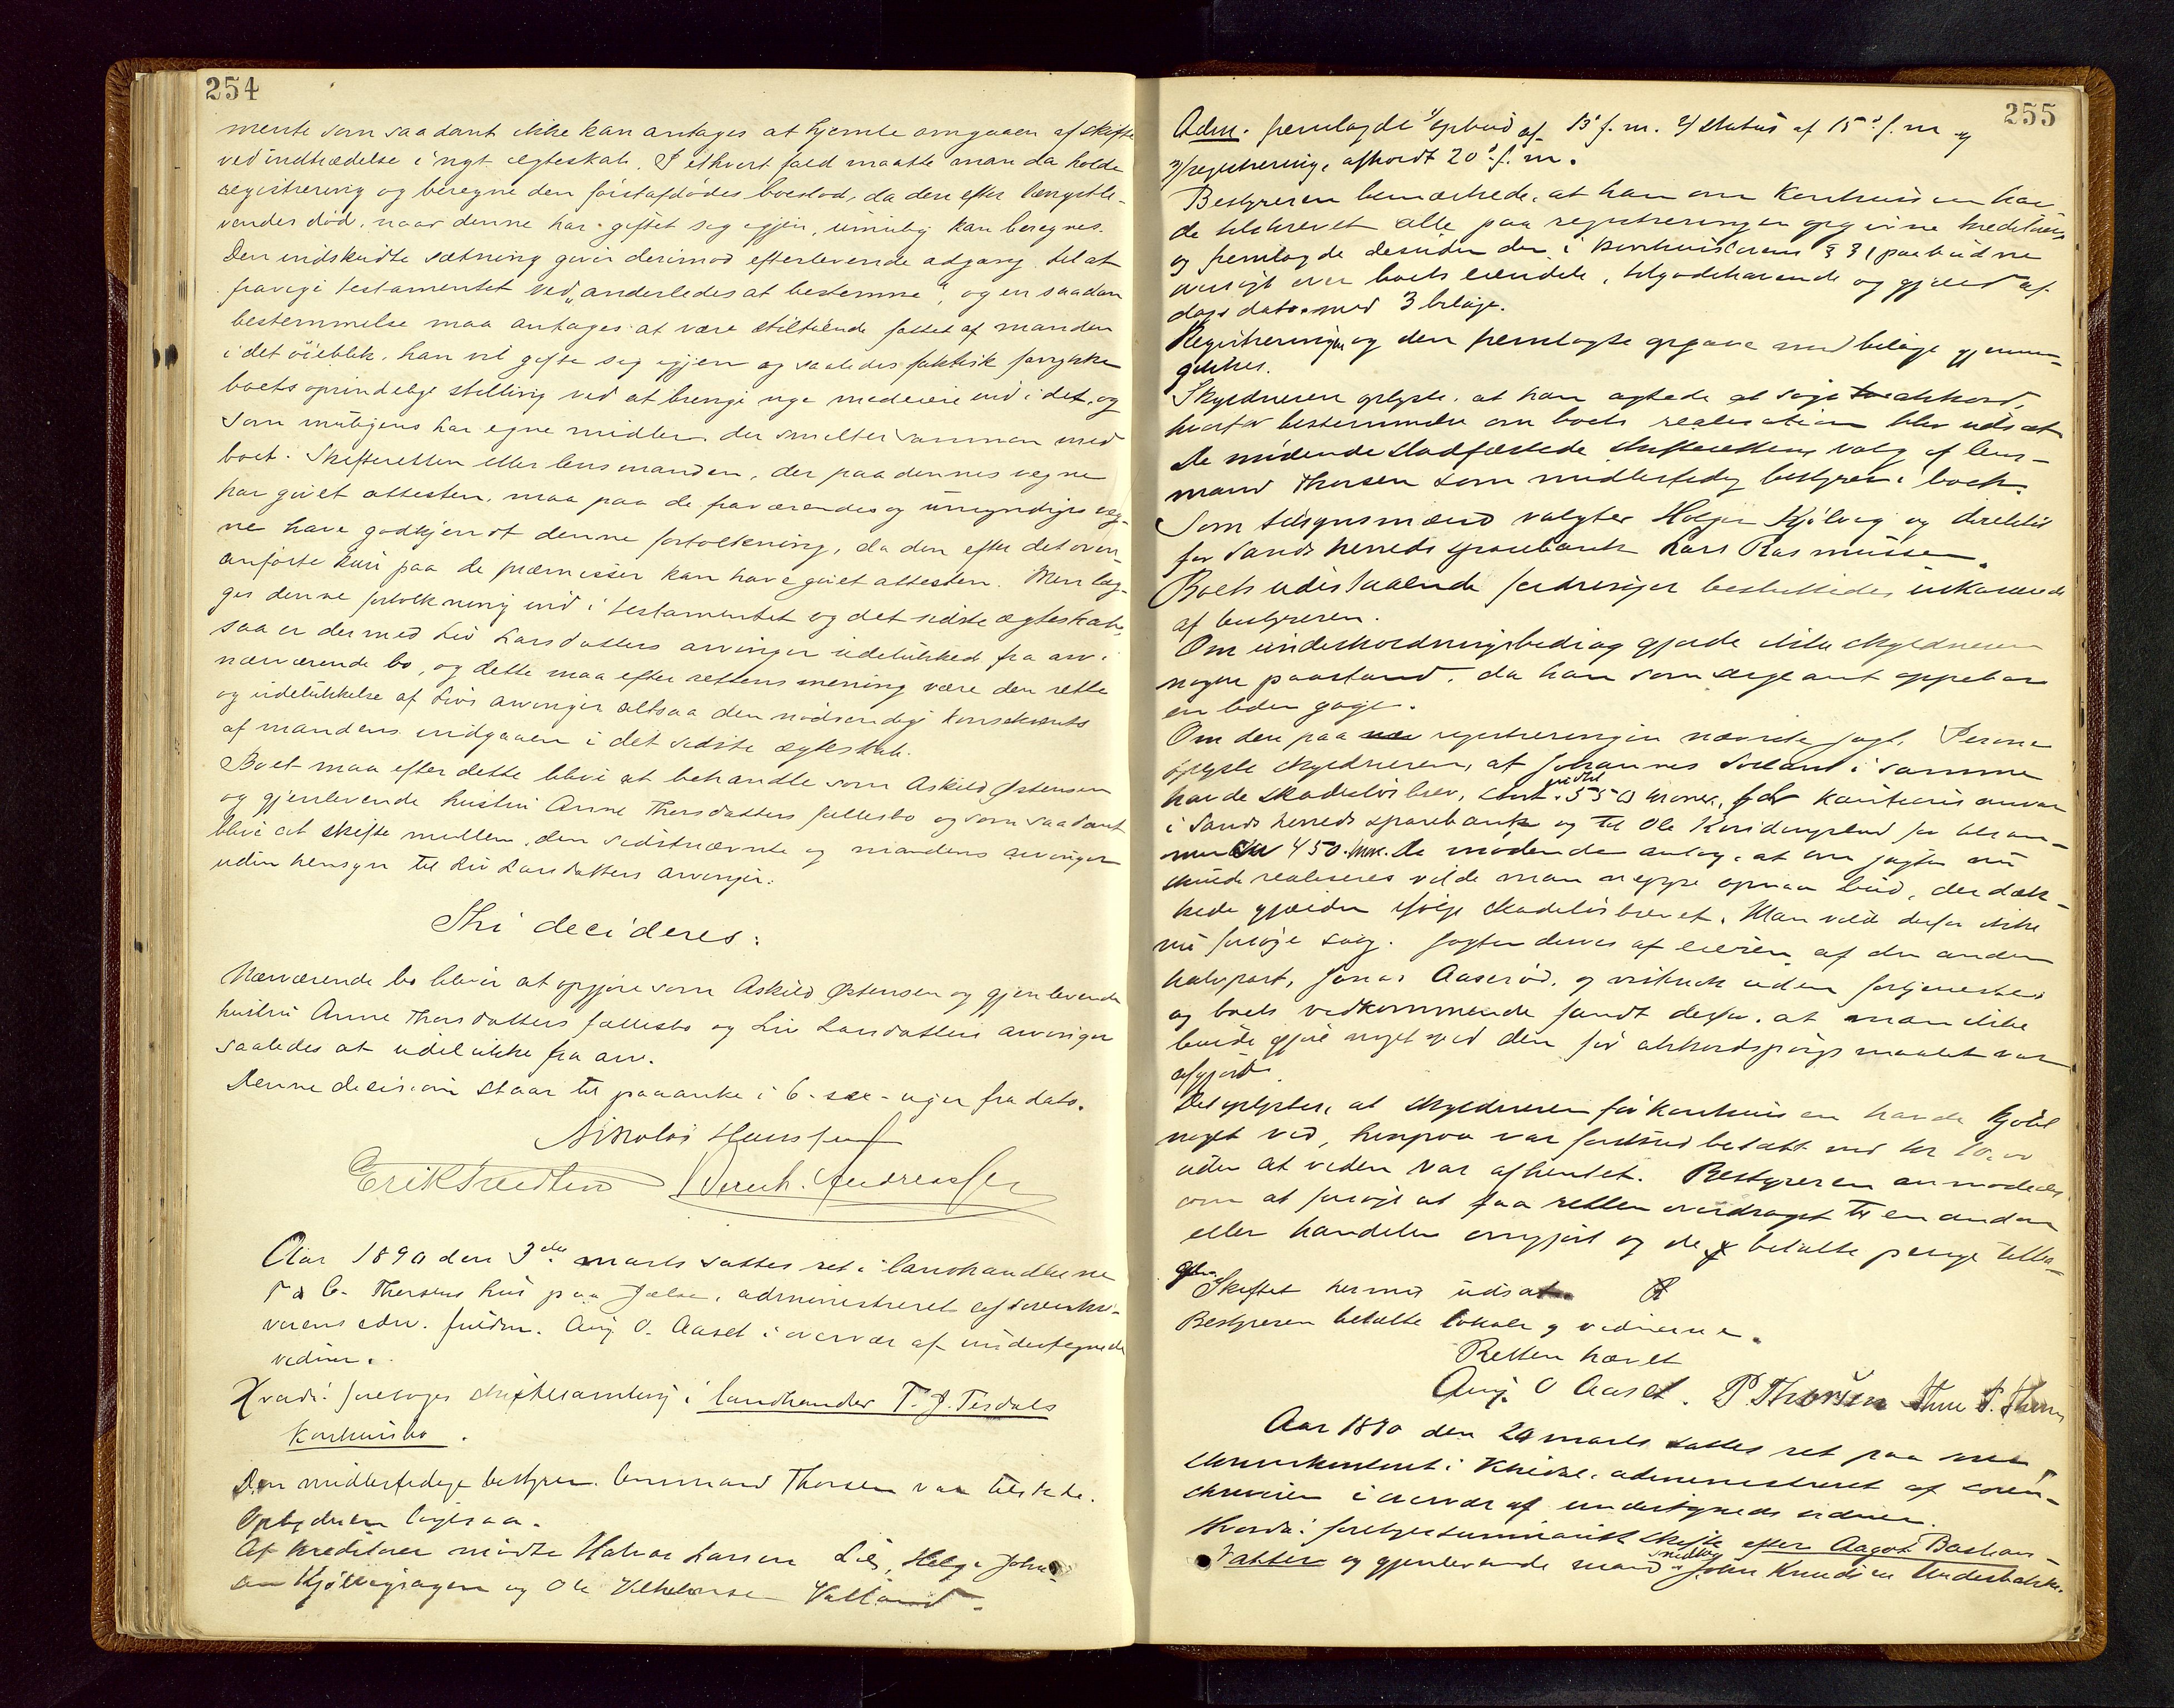 254
mente som saadant ikke kan antages at hjemle omgaaen af skifte
ved indtrædelse i nyt ægteskab. I ethvert fald maatte man da holde
registrering og beregne den førstafdødes boeslod, da den efter længstle-
vendes død, naar denne har giftet sig igjen, umulig kan beregnes.
Den indskudte sætning giver derimod efterlevende adgang til at
fravige testamentet ved "anderledes at bestemme", og en saadan
bestemmelse maa antages at være stiltiende fattet af manden
i det øieblik, han vil gifte sig igjen og saaledes faktisk forrykke
boets oprindelige stilling ved at bringe nye medeiere ind i det, og
som muligens har egne midler, der smelter sammen med
boet. Skifteretten eller lensmanden, der paa dennes vegne
har givet attesten, maa paa de fraværendes og umyndiges veg-
ne have godkjendt denne fortolkning, da den efter det oven
anførte kun paa de præmisser kan have givet attesten. Men læg-
ges denne fortolkning ind i testamentet og det sidste ægteskab,
saa er dermed Liv Larsdatters arvinger udelukked fra arv i
nærværende bo, og dette maa efter rettens mening være den rette
og udelukkelse af Livs arvinger altsaa den nødvendige konsekvents
af mandens indgaaen i det sidste ægteskab.
Boet maa efter dette blive at behandle som Askild Østensen
og gjenlevende hustru Anne Thorsdatters fællesbo og som saadant
blive at skifte mellem den sidstnævnte og mandens arvinger
uden hensyn til Liv Larsdatters arvinger.
Thi decideres:
Nærværende bo bliver at opgjøre som Askild Østensen og gjenlevende
hustru Anne Thorsdatters fællesbo og Liv Larsdatters arvinger
saaledes at udelukke fra arv.
Denne decision staar til paaanke i 6 - sex - uger fra dato.
Nikolai
Erik Berth. Andreassen
Aar 1890 den 3die marts sattes ret i landhandlerne
T & C. Thorsens hus paa Jelse, administreret af sorenskri-
verens edsv. fuldm. Aug. O. Aaset i overvær af undertegnede
vidner.
Hvorda: foretoges skiftesamling i landhandler T. J. Tesdals
konkursbo.
Den midlertidige bestyrer lensmand Thorsen var tilstede.
Opbyderen ligesaa.
Af kreditorer mødte Halvor Larsen Lie, Helge Johns-
en Kjølvigsagen og Ole Vilhelmsen Valland.
255
Adm. fremlagde 1/ opbud af 15 f. m. 2/ status af 15 d. f. m. og
3/ registrering, afholdt 20 d. f. m.
Bestyreren bemærkede, at han om konkursen hav-
de tilskrevet alle paa registreringen opgivne kreditorer
og fremlagde desuden den i konkurslovens § 31 paabudne
oversigt over boets eiendele, tilgodehavende og gjæld af
dags dato med 3 bilage.
Registreringen og den fremlagte opgave med bilage gjennem-
gikkes.
Skyldneren oplyste, at han agtede at søge akkord,
hvorfor bestemmelse om boets realisation blev udsat
De mødende stadfæstede skifterettens valg af lens-
mand Thorsen som midlertidig bestyrer i boet.
Som tilsynsmænd valgtes Holger Kjølvig og direktør
for Sands herreds sparebank Lars Rasmussen.
Boets udestaaende fordringer besluttedes inkasserede
af bestyreren.
Om underholdningsbedrag gjorde ikke skyldneren
nogen paastand, da han som sergeant oppebar
en liden gage.
Om den paa registreringen nævnte jagt, Perone
oplyste skyldneren, at Johannes Solland i samme
havde skadesløsbrev, 550 kroner, for kautionsansvar
i Sands herreds sparebank og til Ole for
450. De mødende antog, at om jagten nu
skulde realiseres vilde man neppe opnaa bud, der dæk-
kede gjælden ifølge skadesløsbrevet. Man vilde derfor ikke
nu forsøge salg. Jagten drives af eieren af den anden
halvpart, Jonas Aaserød, og vistnok uden fortjeneste
og boets vedkommende fandt derfor, at man ikke
burde gjøre noget ved den før akkordspørgsmaalet var
afgjort.
Det oplystes, at skyldneren før konkursen havde kjøbt
noget ved, hvorpaa var forskud betalt med kr
uden at veden var afhentet. Bestyreren anmodedes
om at forsøge at faa retten overdraget til en anden
eller handelen omgjort og de betalte penge tilba-
gebr.
Skiftet hermed udsat.
Bestyreren betalte lokale og vidnerne.
Retten hævet
Aug. O Aaset. P Thorsen Thore T. Thorsen
Aar 1890 den 20 marts sattes ret paa
skriverkontoret i administreret af soren-
skriveren i overvær af undertegnede vidner.
Hvorda: foretoges summarisk skifte efter Aagot Bastians-
datter og gjenlevende mand snedker John Knudsen Underbakke.